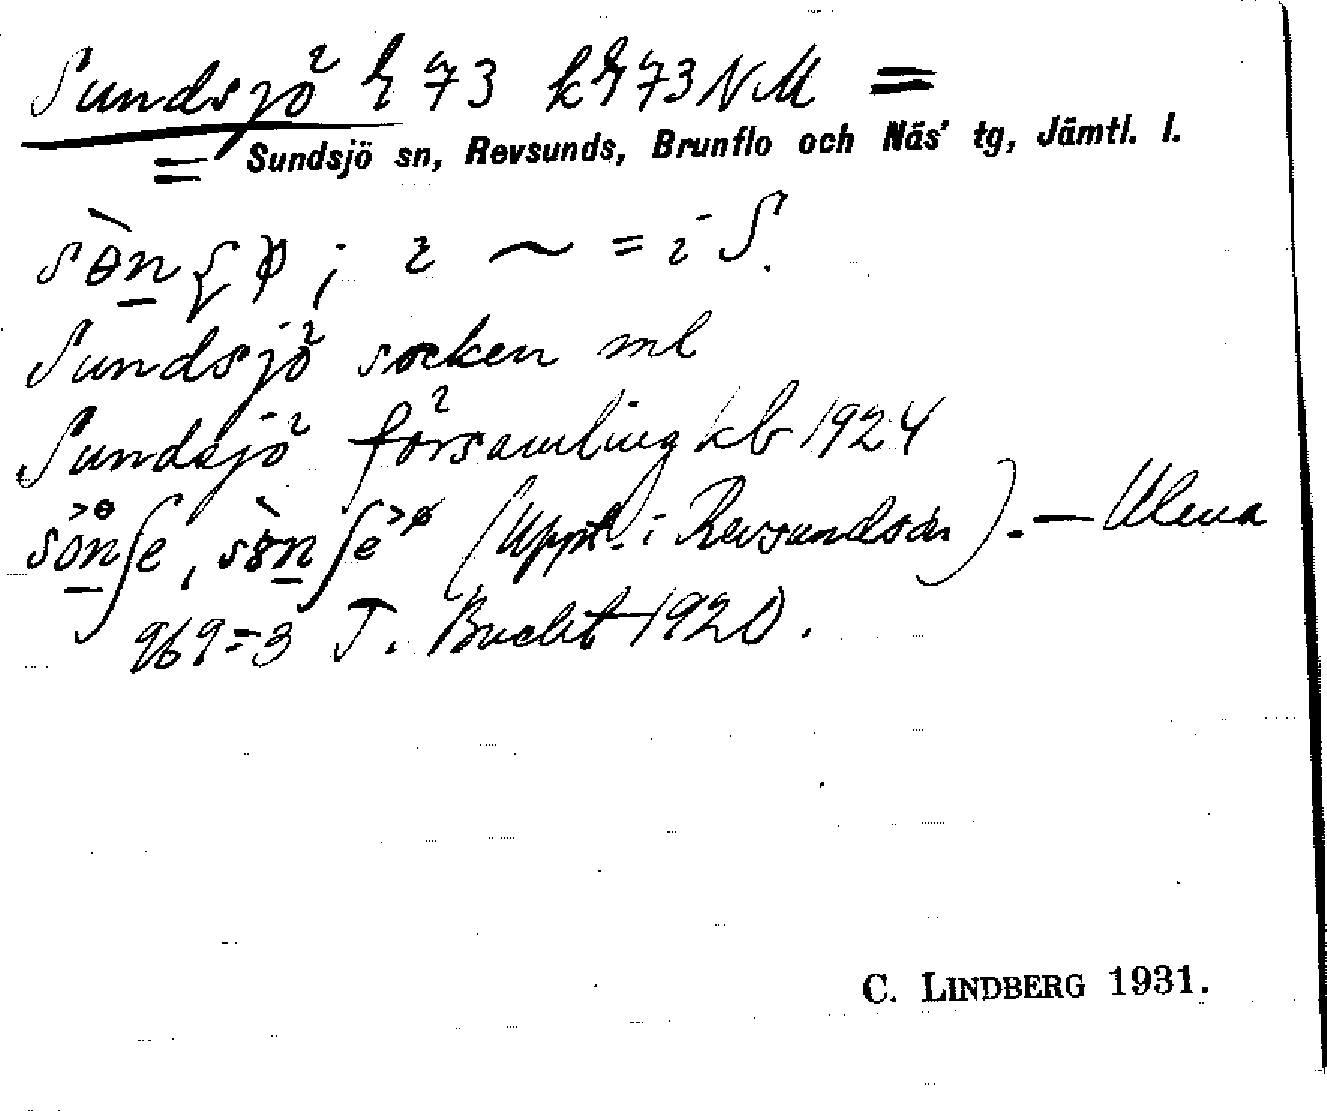 Sundsjö 73 73 NM =
= Sundsjö sn, Revsunds, Brunflo och Näs' tg, Jämtl. l.
; ~ = i S.
Sundsjö socken ml
Sundsjö församling kb 1924
(Uppt. i Revsundssn). —
969=3 T. Bucht 1920.
C. LINDBERG 1931.